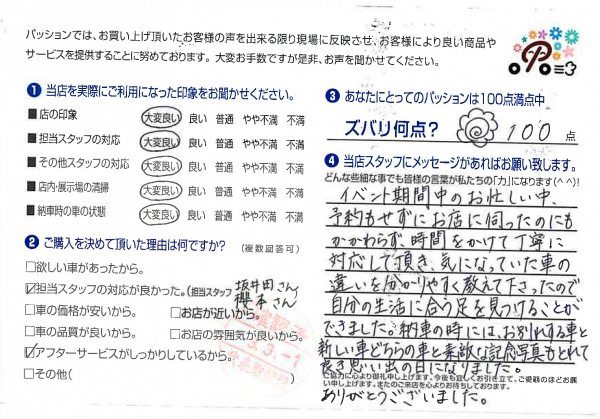 パッションでは、お買い上げ頂いたお客様の声を出来る限り現場に反映させ、お客様により良い商品や
サービスを提供することに努めております。大変お手数ですが是非、お声を聞かせてください。
❶ 当店を実際にご利用になった印象をお聞かせください。
■ 店の印象 大変良い 良い 普通 やや不満 不満
■ 担当スタッフの対応 大変良い 良い 普通 やや不満 不満
■ その他スタッフの対応 大変良い 良い 普通 やや不満 不満
■ 店内・展示場の清掃 大変良い 良い 普通 やや不満 不満
■ 納車時の車の状態 大変良い 良い 普通 やや不満 不満
❷ ご購入を決めて頂いた理由は何ですか? (複数回答可)
□欲しい車があったから。
☑担当スタッフの対応が良かった。(担当スタッフ 坂井田さん
櫻本さん
□車の価格が安いから。 □お店が近いから。
□車の品質が良いから。 □お店の雰囲気が良いから。
☑アフターサービスがしっかりしているから。
□その他(
❸ あなたにとってのパッションは100点満点中
ズバリ何点? 100 点
❹ 当店スタッフにメッセージがあればお願い致します。
どんな些細な事でも皆様の言葉が私たちの「力」になります(^^)!
イベント期間中のお忙しい中、
予約もせずにお店に伺ったのにも
かかわらず、時間をかけて丁寧に
対応して頂き、気になっていた車の
違いを分かりやすく教えて下さったので
自分の生活に合う足を見つけることが
できました。納車の時には、お別れする車と
新しい車どちらの車と素敵な記念写真もとれて
良き思い出の日になりました。
ご協力に心より御礼申し上げます。今後も宜しくお引き立て、ご愛顧のほどお願
い申し上げます。またのご来店を心よりお待ちしております。
ありがとうございました。